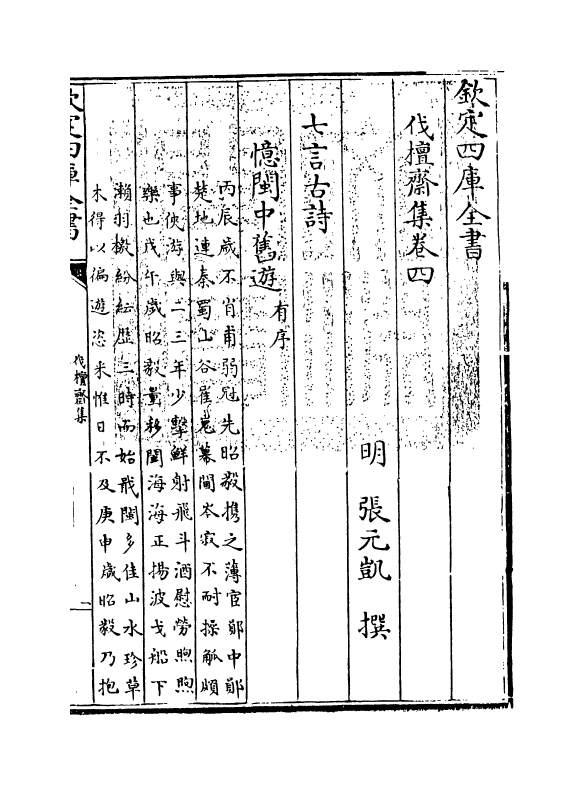 欽定四庫全書
伐檀齋集卷四
明 張元凱 撰
七言古詩
憶閩中舊遊有序
丙辰歳不肖甫弱冠先昭毅携之薄宦鄖中鄖
楚地連秦蜀山谷崔嵬幕間岑寂不耐操觚頗
事俠游與二三年少擊鮮射飛斗酒慰勞煦煦
樂也戊午歳昭毅量移閩海海正揚波戈船下
瀨羽檄紛紜歴三時而始戢閩多佳山水珍草
木得以徧遊恣采惟日不及庚申歳昭毅乃抱
欽定四庫全書
伐檀齋集
一